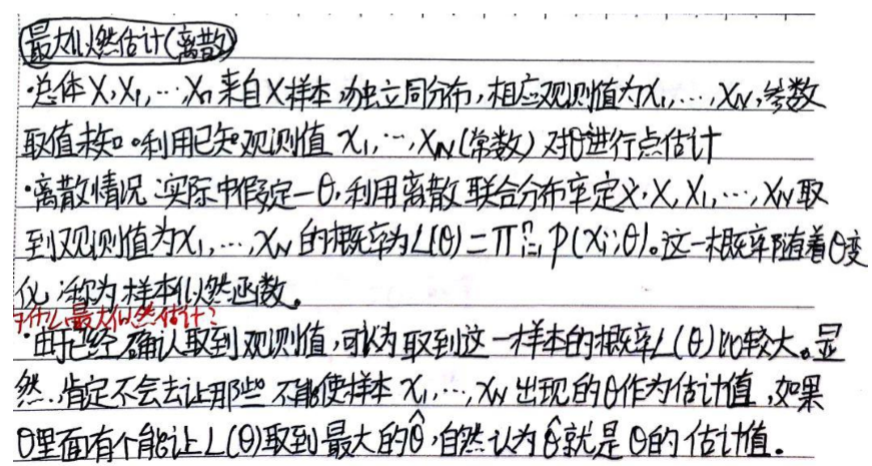 最大似然估计(离散)
·总体X,X₁,…Xₙ来自X样本,独立同分布,相应观测值为x₁,…,x_N,参数
取值未知。利用已知观测值 x₁,…,x_N(常数)对θ进行点估计
·离散情况:实际中假定一θ,利用离散联合分布率定义:X,X₁,…,X_N取
到观测值为x₁,…,x_N的概率为L(θ)=∏ⁿᵢ₌₁P(xᵢ;θ)。这一概率随着θ变
化,称为样本似然函数。
为什么最大似然估计?
·由于已经确认取到观测值,可认为取到这一样本的概率L(θ)比较大。显
然,肯定不会去让那些不能使样本x₁,…,x_N出现的θ作为估计值,如果
θ里面有个能让L(θ)取到最大的θ̂,自然认为θ̂就是θ的估计值。